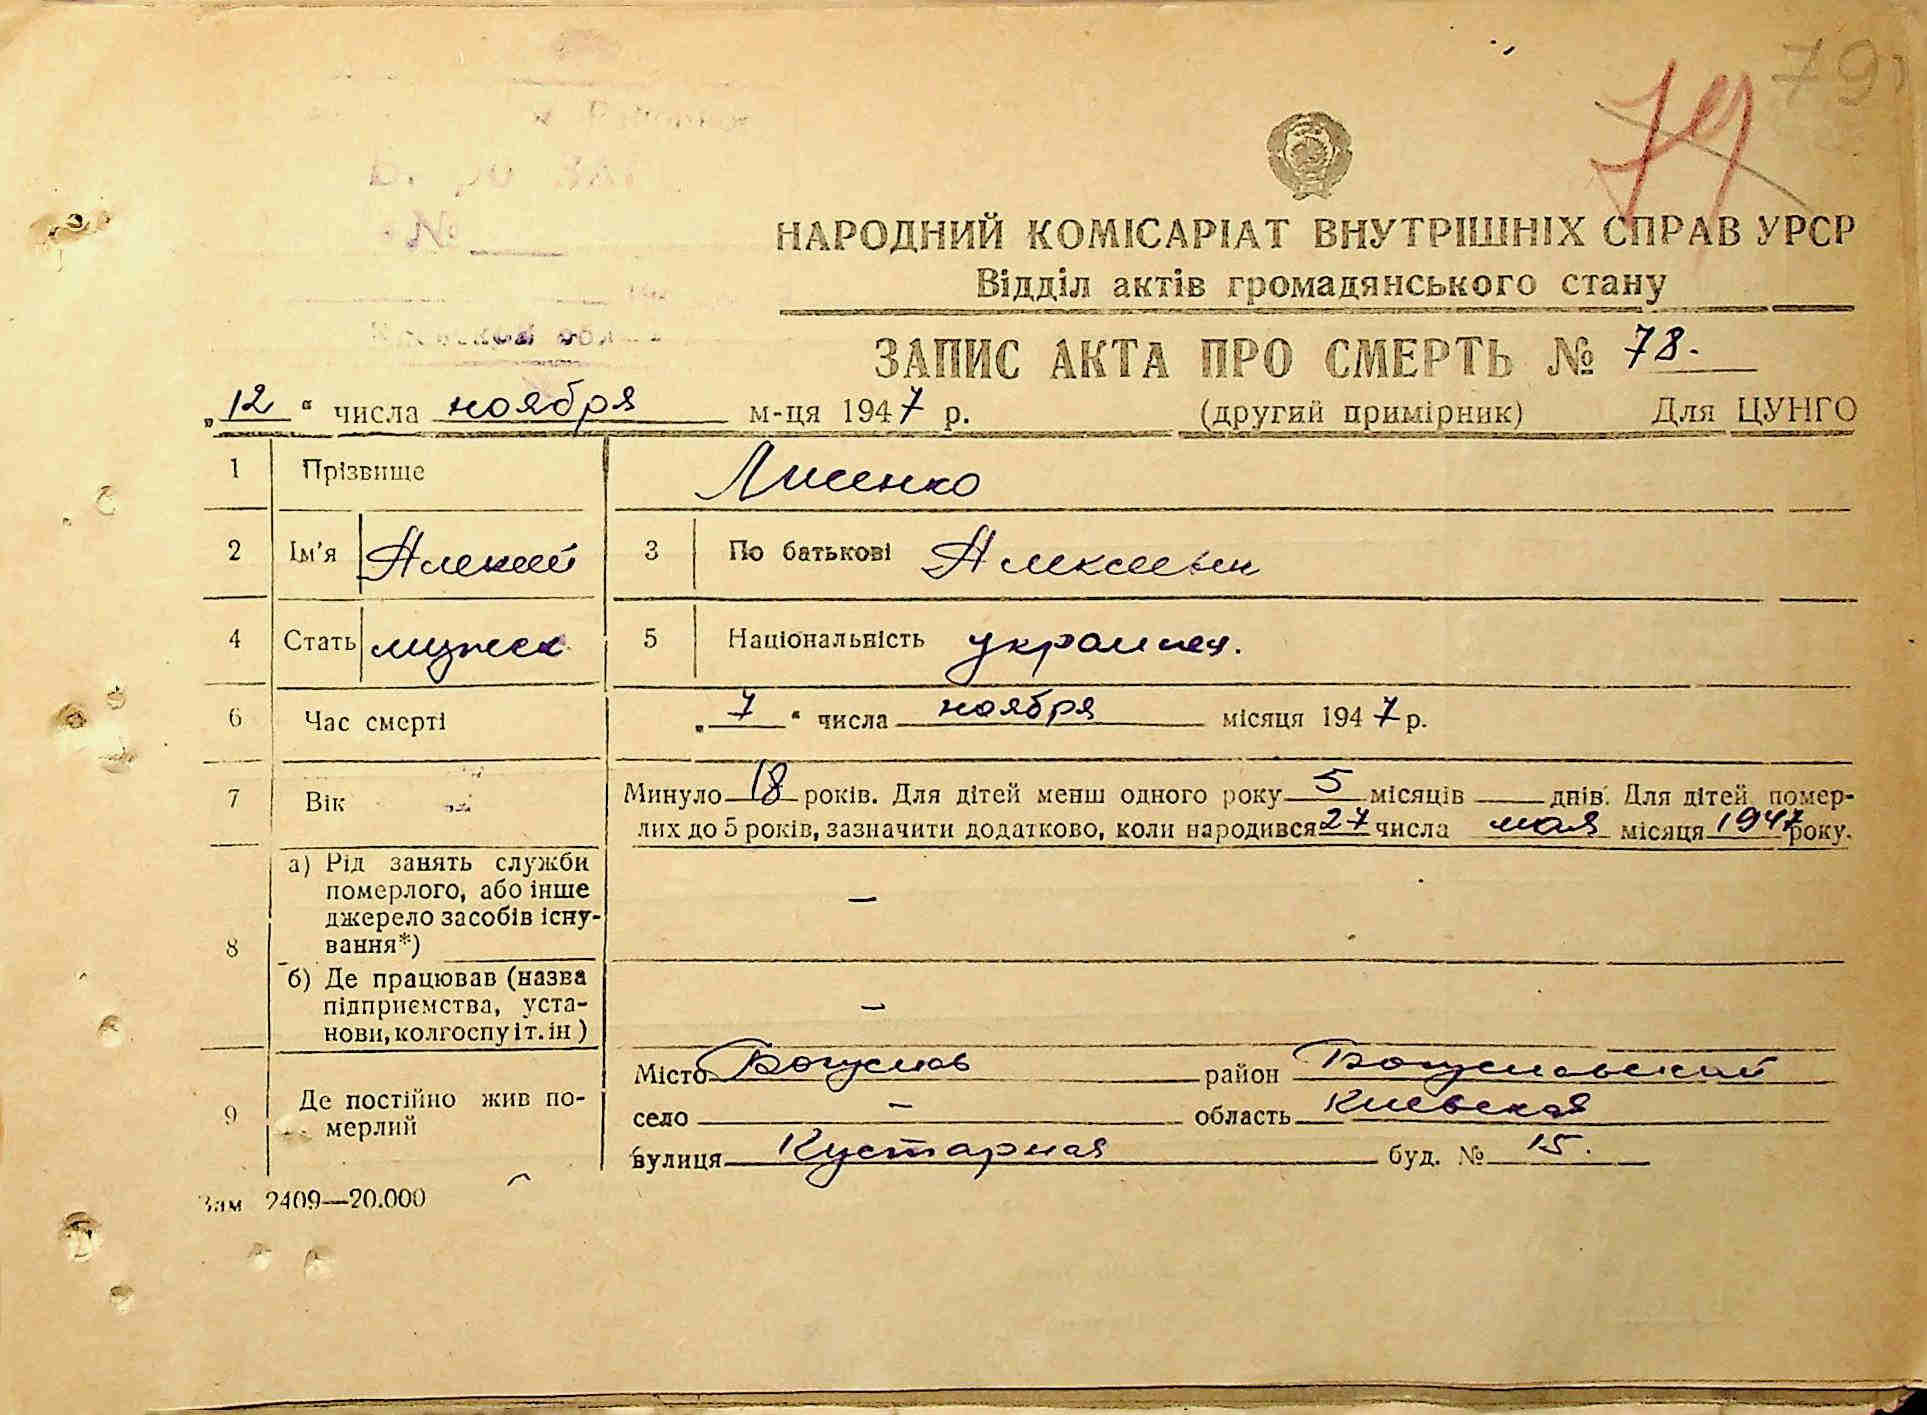 79
74
НАРОДНИЙ КОМІСАРІАТ ВНУТРІШНІХ СПРАВ УРСР
Відділ актів громадянського стану
ЗАПИС АКТА ПРО СМЕРТЬ № 78.
„12“ числа ноября м-ця 1947 р. (другий примірник) Для ЦУНГО
1 Прізвище Лисенко
2 Ім'я Алексей 3 По батькові Алексеевич
4 Стать мужск 5 Національність украинец.
6 Час смерті „7“ числа ноября місяця 1947 р.
7 Вік Минуло 18 років. Для дітей менш одного року 5 місяців днів. Для дітей помер-
лих до 5 років, зазначити додатково, коли народився 27 числа мая місяця 1947 року.
8 а) Рід занять служби
померлого, або інше
джерело засобів існу-
вання*) —
б) Де працював (назва
підприємства, уста-
нови, колгоспу і т. ін) —
9 Де постійно жив по-
мерлий
Місто Богуслав район Богуславский
село — область Киевская
вулиця Кустарная буд. № 15.
Зам 2409—20.000